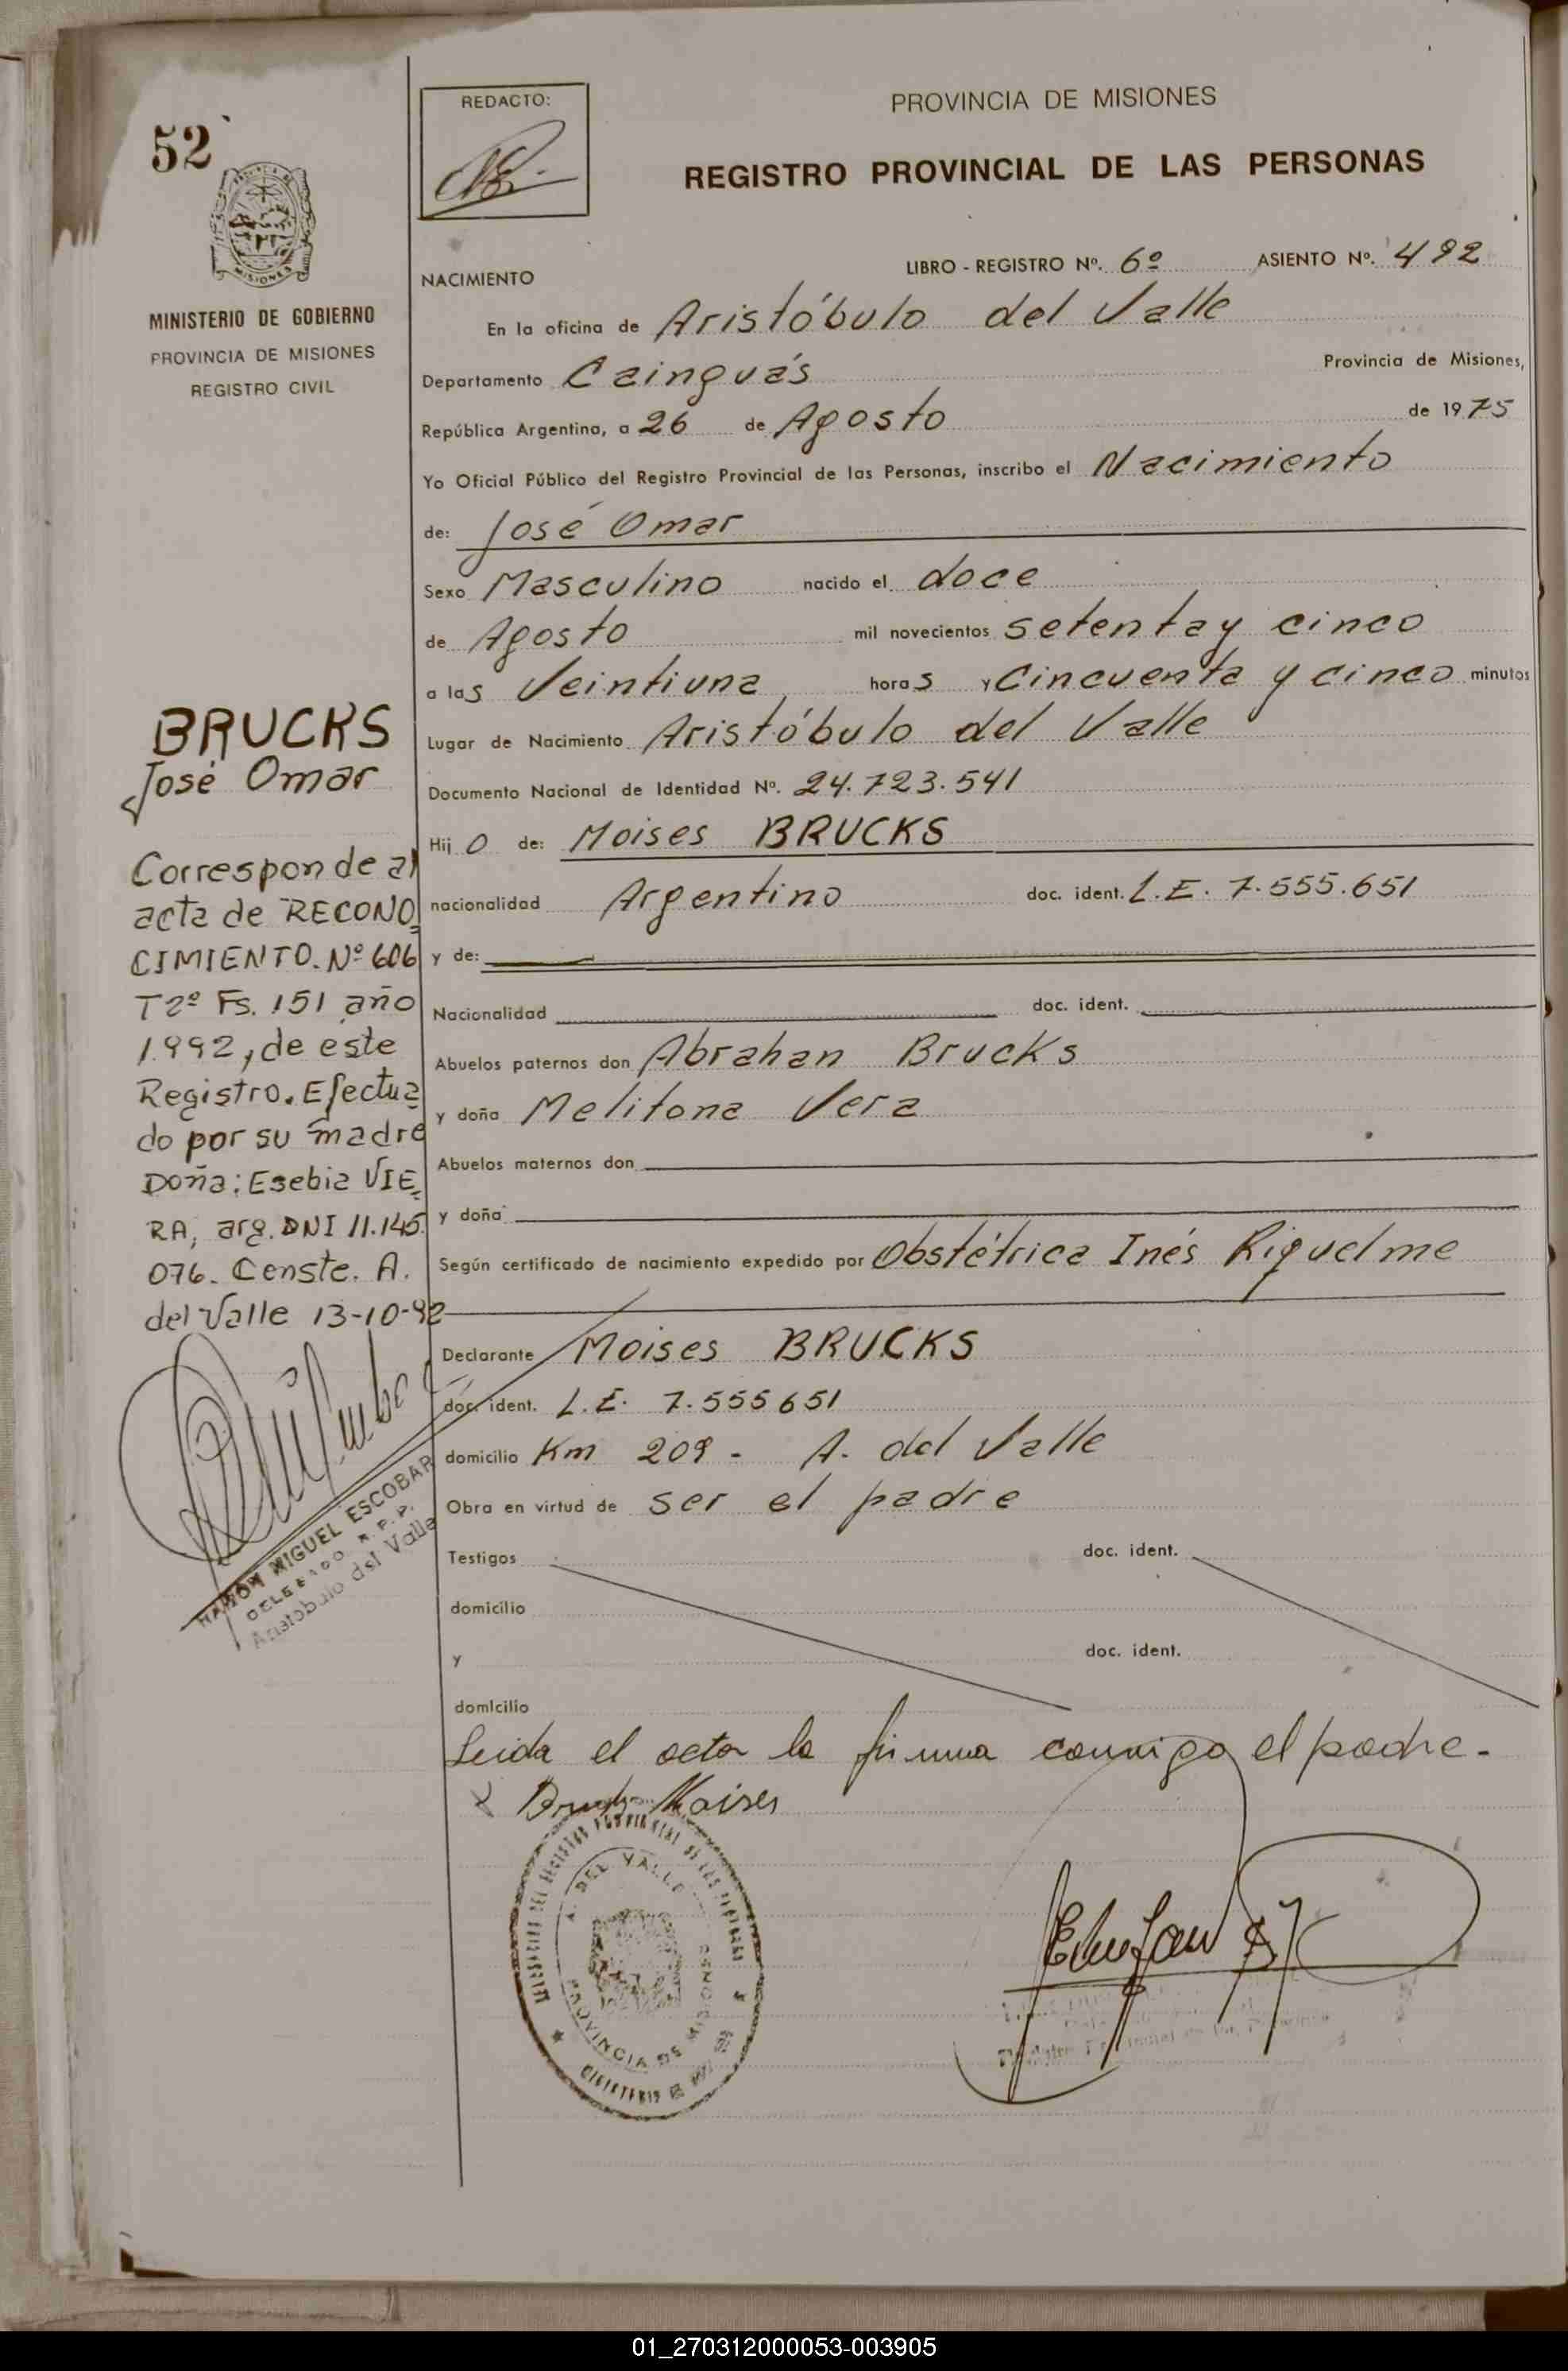 52
MISIONES
MINISTERIO DE GOBIERNO
PROVINCIA DE MISIONES
REGISTRO CIVIL
REDACTO:
PROVINCIA DE MISIONES
REGISTRO PROVINCIAL DE LAS PERSONAS
NACIMIENTO
LIBRO - REGISTRO Nº. 6º ASIENTO Nº. 492
En la oficina de Aristóbulo del Valle
Departamento Cainguás Provincia de Misiones,
República Argentina, a 26 de Agosto de 1975
Yo Oficial Público del Registro Provincial de las Personas, inscribo el Nacimiento
de: José Omar
Sexo Masculino nacido el doce
de Agosto mil novecientos setenta y cinco
a las Veintiuna horas y Cincuenta y cinco minutos
Lugar de Nacimiento Aristóbulo del Valle
Documento Nacional de Identidad Nº. 24.723.541
Hijo de: Moises BRUCKS
nacionalidad Argentino doc. ident. L.E. 7.555.651
y de:
Nacionalidad doc. ident.
Abuelos paternos don Abrahan Brucks
y doña Melitona Vera
Abuelos maternos don
y doña
Según certificado de nacimiento expedido por Obstétrica Inés Riquelme
Declarante Moises BRUCKS
doc. ident. L.E. 7.555651
domicilio Km 209 - A. del Valle
Obra en virtud de ser el padre
Testigos doc. ident.
domicilio
y doc. ident.
domicilio
Leida el acta la firma conmigo el padre.-
Brucks Moises
BRUCKS
José Omar
Corresponde al
acta de RECONO
CIMIENTO. Nº 606
T2º Fs. 151 año
1992, de este
Registro. Efectua
do por su madre
Doña: Esebia VIE
RA, arg. DNI 11.145.
076. Conste. A.
del Valle 13-10-92
RAMON MIGUEL ESCOBAR
DELEGADO R.P.P.
Aristobulo del Valle
A. DEL VALLE
PROVINCIA DE MISIONES
01_270312000053-003905